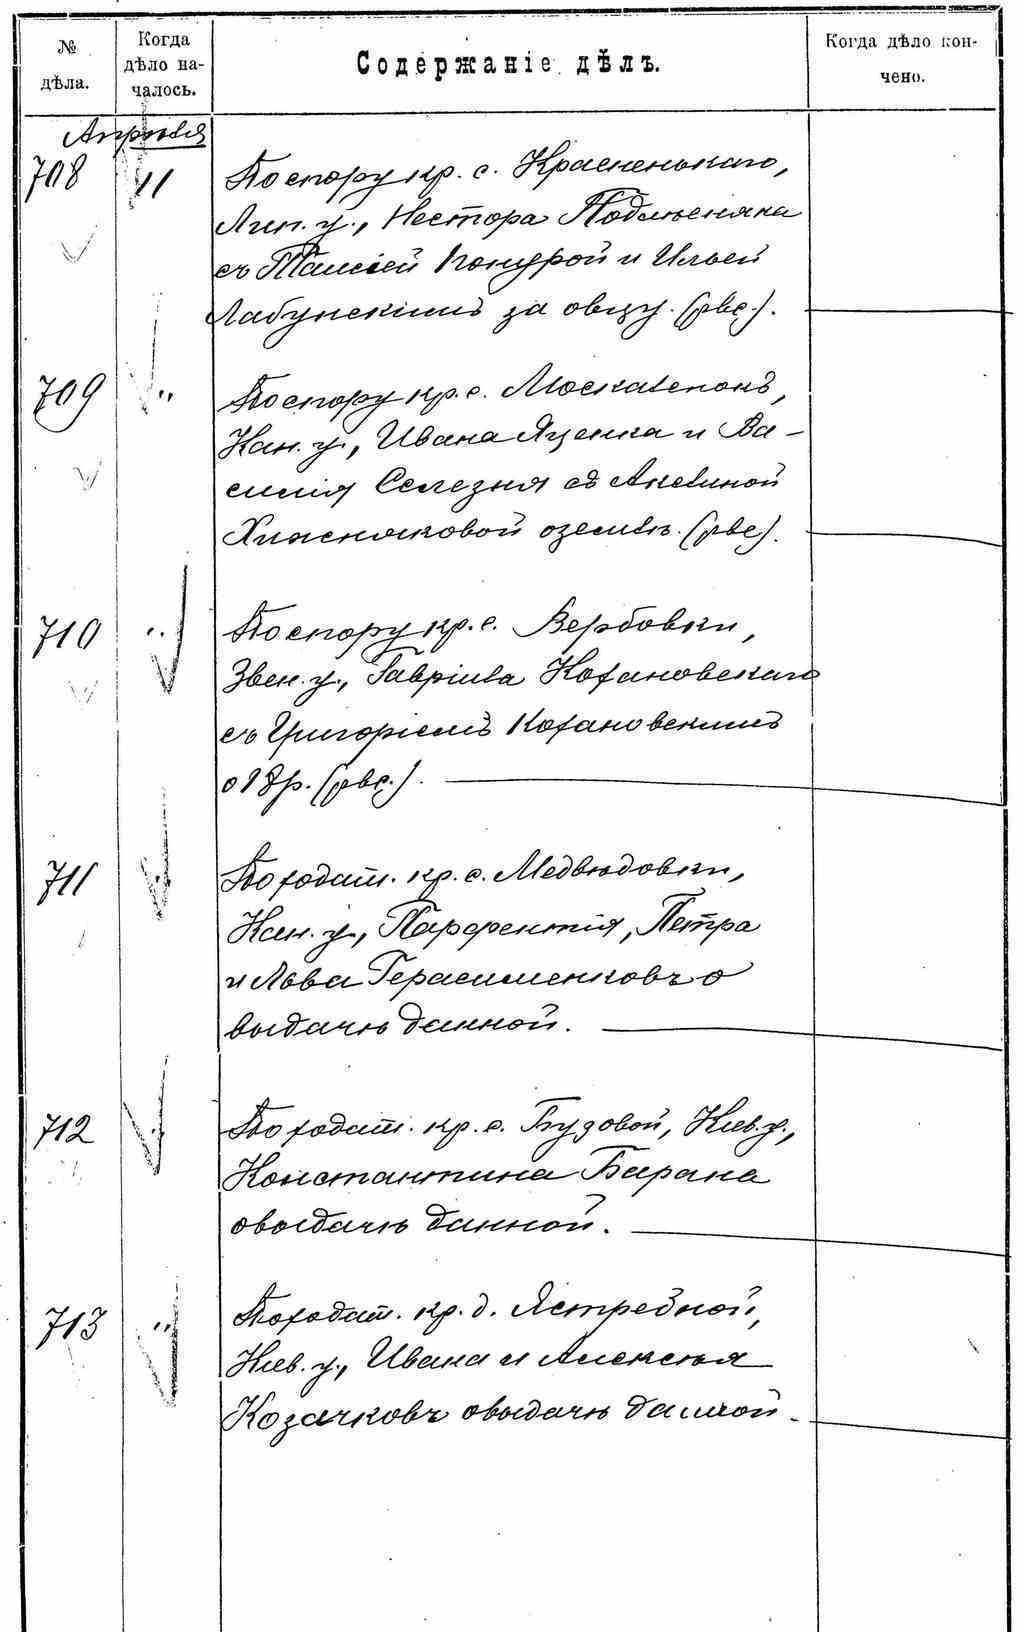 № дѣла.
Когда дѣло на-
чалось.
Содержаніе дѣлъ.
Когда дѣло кон-
чено.
Апрѣля
708 11 По спору кр. с. Красненькаго,
Лип. у., Нестора Подлѣсняка
съ Таисіей Кондрой и Ильей
Лабунскимъ за овцу. (рвс.).
709 " По спору кр. с. Москаленокъ,
Кан. у., Ивана Яценка и Ва-
силія Селезня съ Акелиной
Хижняковой о землѣ. (рвс).
710 " По спору кр. с. Вербовки,
Звен. у., Гавріила Кохановскаго
съ Григоріемъ Кохановскимъ
о 18 р. (рвс.).
711 " По ходат. кр. с. Медвѣдовки,
Кан. у., Парфентія, Петра
и Льва Герасименковъ о
выдачѣ данной.
712 " По ходат. кр. с. Бузовой, Кіев. у.,
Константина Барана
о выдачѣ данной.
713 " По ходат. кр. д. Ястребной,
Кіев. у., Ивана и Алексѣя
Козачковъ о выдачѣ данной.